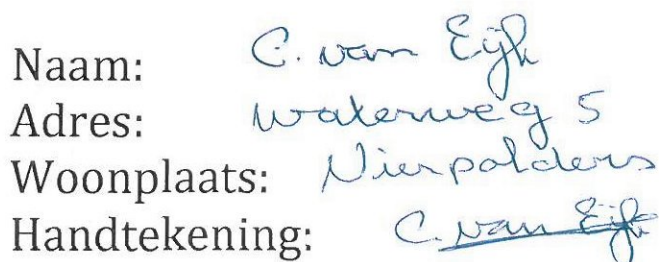 Naam: C. van Eijk
Adres: Waterweg 5
Woonplaats: Vierpolders
Handtekening: C. van Eijk